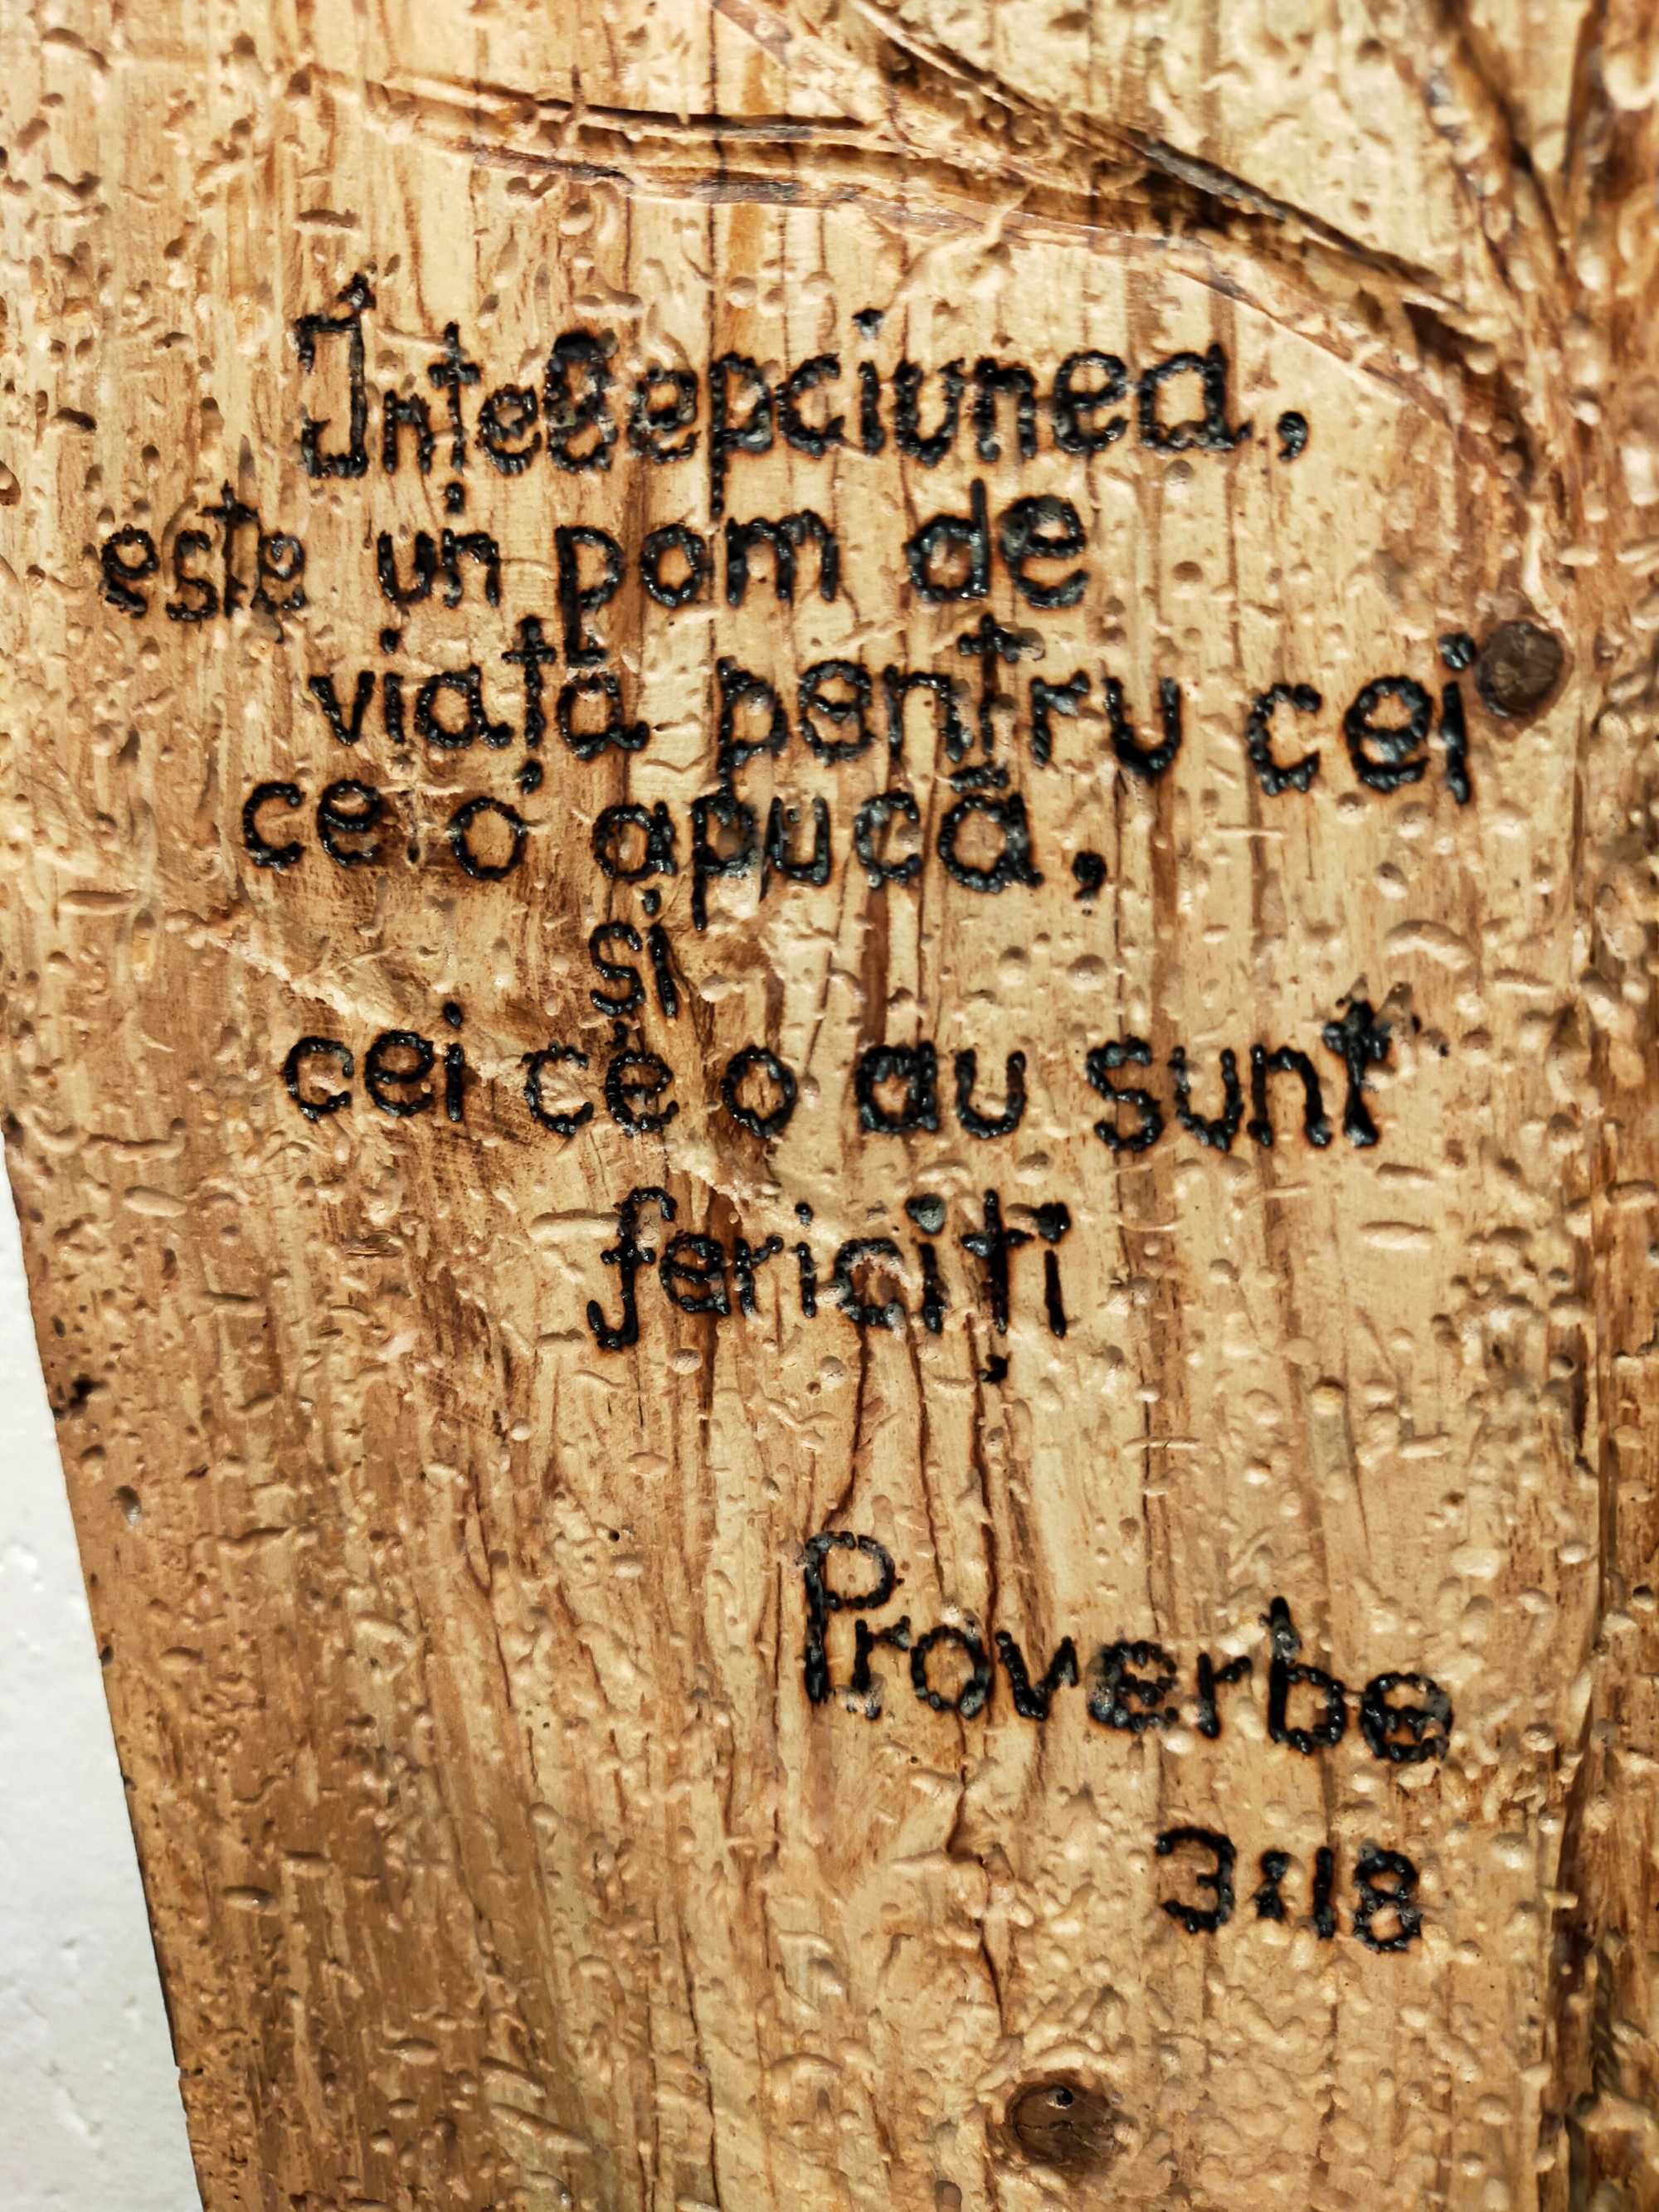 Înțelepciunea,
este un pom de
viața pentru cei
ce o apucă,
și
cei ce o au sunt
fericiți
Proverbe
3:18